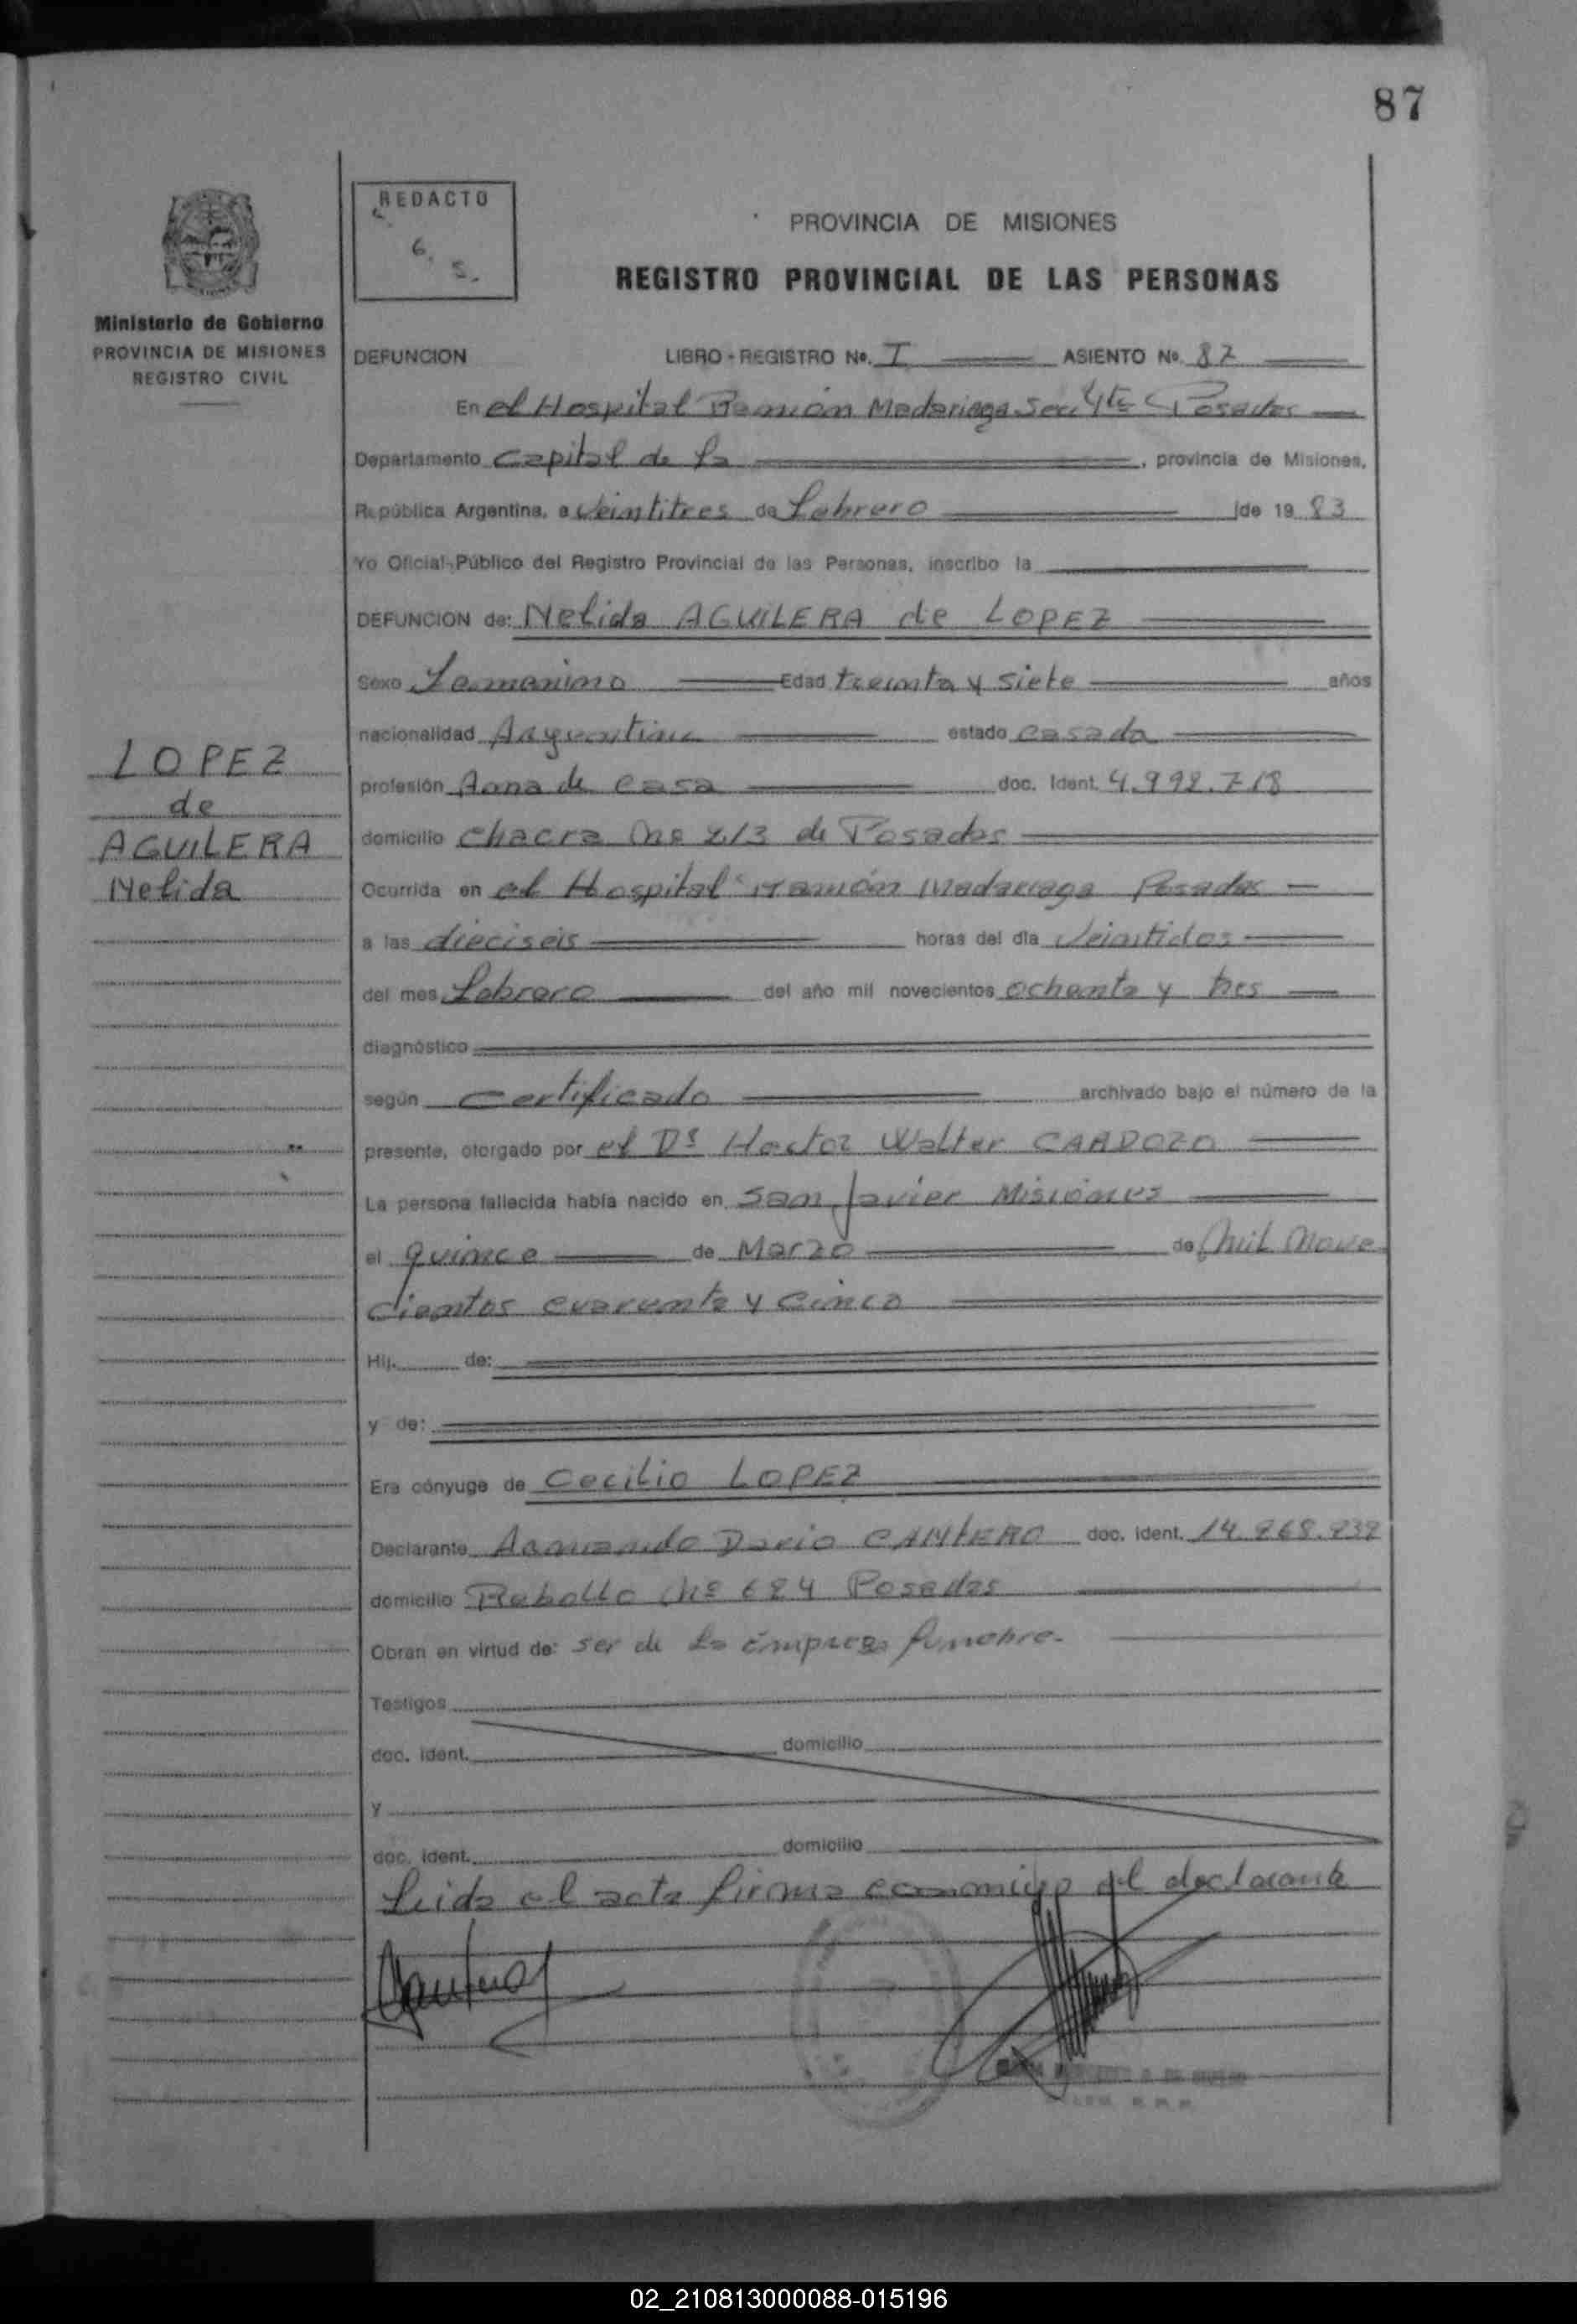 87
REDACTO
6.
S.
PROVINCIA DE MISIONES
REGISTRO PROVINCIAL DE LAS PERSONAS
Ministerio de Gobierno
PROVINCIA DE MISIONES
REGISTRO CIVIL
DEFUNCION LIBRO - REGISTRO No. I ASIENTO No. 87
En el Hospital Ramón Madariaga Sec. 4ta Posadas
Departamento Capital de la , provincia de Misiones,
República Argentina, a Veintitres de Febrero de 19 83
Yo Oficial Público del Registro Provincial de las Personas, inscribo la
DEFUNCION de: Nelida AGUILERA de LOPEZ
Sexo Femenino Edad treinta y siete años
nacionalidad Argentina estado casada
profesión Ama de casa doc. Ident. 4.992.718
domicilio chacra No 213 de Posadas
Ocurrida en el Hospital Ramón Madariaga Posadas
a las dieciseis horas del día Veintidos
del mes Febrero del año mil novecientos ochenta y tres
diagnóstico
según certificado archivado bajo el número de la
presente, otorgado por el Dr Hector Walter CARDOZO
La persona fallecida había nacido en San Javier Misiones
el quince de Marzo de Mil Nove
cientos cuarenta y cinco
Hij. de:
y de:
Era cónyuge de Cecilio LOPEZ
Declarante Armando Dario CANTERO doc. ident. 14.868.939
domicilio Rebollo No 684 Posadas
Obran en virtud de: ser de la empresa funebre.
Testigos
doc. ident. domicilio
y
doc. ident. domicilio
Leida el acta firma conmigo el declarante
LOPEZ
de
AGUILERA
Nelida
02_210813000088-015196